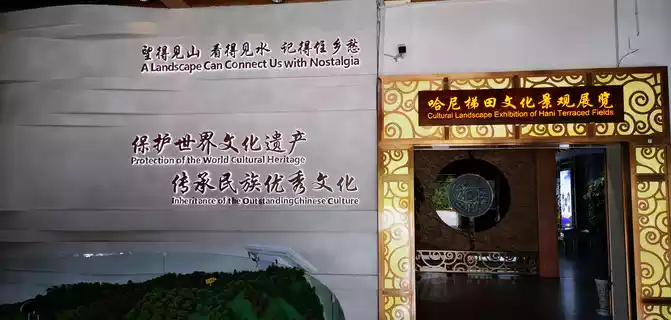 望得见山 看得见水 记得住乡愁
A Landscape Can Connect Us with Nostalgia
保护世界文化遗产
Protection of the World Cultural Heritage
传承民族优秀文化
Inheritance of the OutstandingChinese Culture
哈尼梯田文化景观展览
Cultural Landscape Exhibition of Hani Terraced Fields